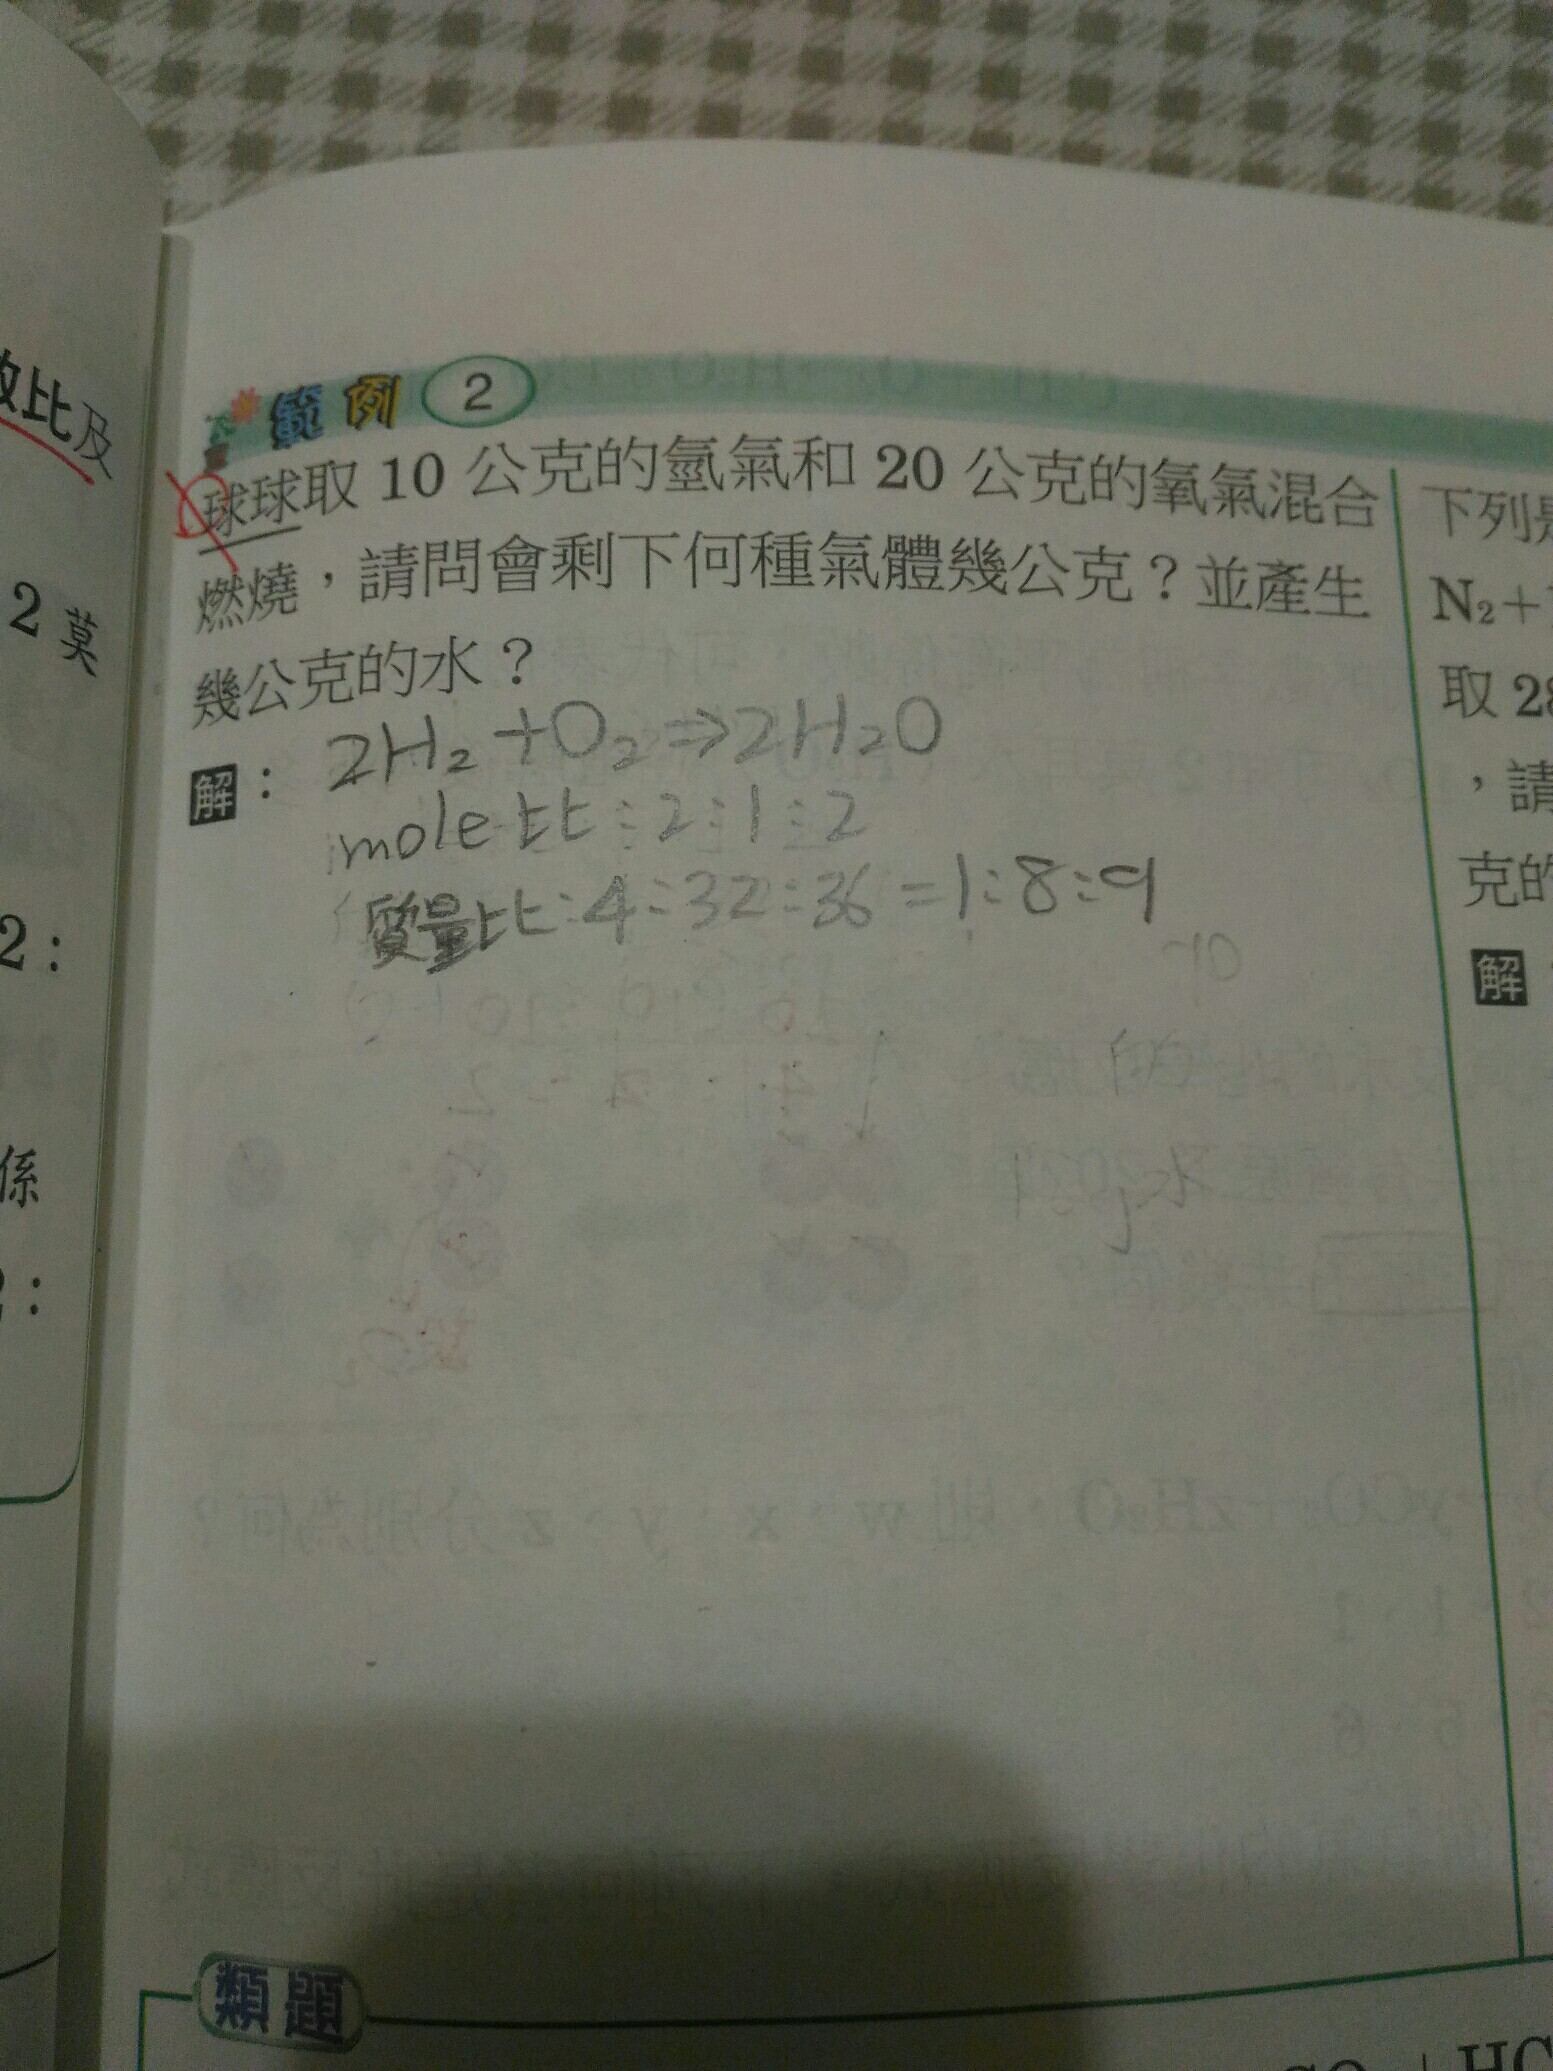 敢比及
2莫
2:
係
2:
範例 2
球球取 10 公克的氫氣和 20 公克的氧氣混合
燃燒，請問會剩下何種氣體幾公克？並產生
幾公克的水？
解：2H₂+O₂⇒2H₂O
mole比:2:1:2
質量比:4:32:36=1:8:9
下列是
N₂+
取 28
，請
克的
解
類題